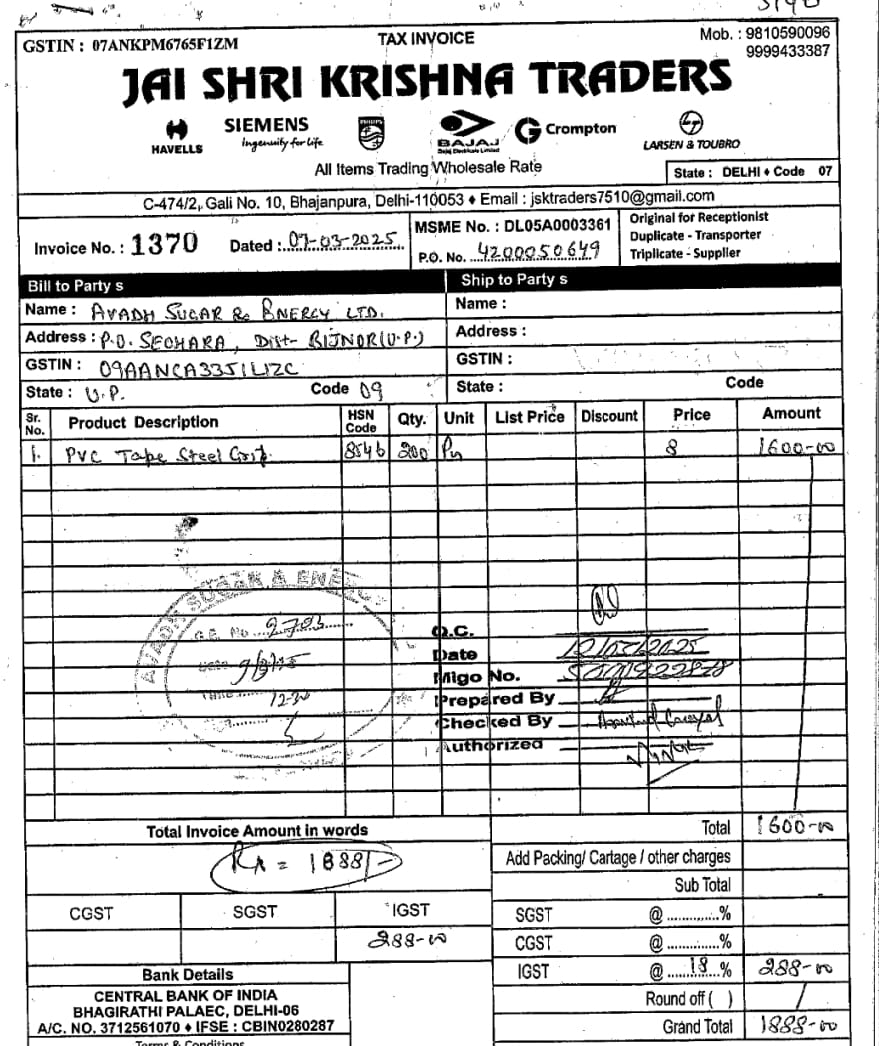 GSTIN : 07ANKPM6765F1ZM
TAX INVOICE
Mob. : 9810590096
9999433387
JAI SHRI KRISHNA TRADERS
HAVELLS
SIEMENS
Ingenuity for Life
PHILIPS
BAJAJ
Bajaj Electricals Limited
Crompton
LARSEN & TOUBRO
All Items Trading Wholesale Rate
State : DELHI ♦ Code 07
C-474/2, Gali No. 10, Bhajanpura, Delhi-110053 ♦ Email : jsktraders7510@gmail.com
Invoice No. : 1370
Dated : 07-03-2025
MSME No. : DL05A0003361
P.O. No. 4200050649
Original for Receptionist
Duplicate - Transporter
Triplicate - Supplier
Bill to Party s
Ship to Party s
Name : AVADH SUGAR & ENERGY LTD.
Name :
Address : P.O. SEOHARA, Dist- BIJNOR (U.P.)
Address :
GSTIN : 09AANCA3351L1ZC
GSTIN :
State : U.P. Code 09
State : Code
Sr. No. Product Description HSN Code Qty. Unit List Price Discount Price Amount
1. PVC Tape Steel Grip 8546 200 8 1600-00
AVADH SUGAR & ENERGY
G.E. No. 2703
Date 9/3/25
Time 12-30
Q.C.
Date 12/03/2025
Migo No.
Prepared By
Checked By
Authorized
Total Invoice Amount in words
Total 1600-00
Rs = 1888/-
Add Packing/ Cartage / other charges
Sub Total
CGST SGST IGST
288-00
SGST @ ..............%
CGST @ ..............%
IGST @ 18 % 288-00
Round off ( ) /
Grand Total 1888-00
Bank Details
CENTRAL BANK OF INDIA
BHAGIRATHI PALAEC, DELHI-06
A/C. NO. 3712561070 ♦ IFSE : CBIN0280287
Terms & Conditions